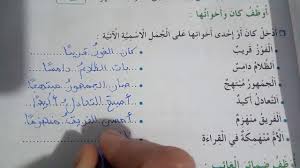 أوظف كان وأخواتها :
أدخل كان أو إحدى أخواتها على الجمل الاسمية الآتية :
• الفوز قريب كان الفوز قريبا
• الظلام دامس بات الظلام دامسا
• الجمهور مبتهج الجمهور مبتهجا
• التعادل أكيد أصبح التعادل أكيدا
• الفريق منهزم أمسى الفريق منهزما
• الأم منهمكة في القراءة